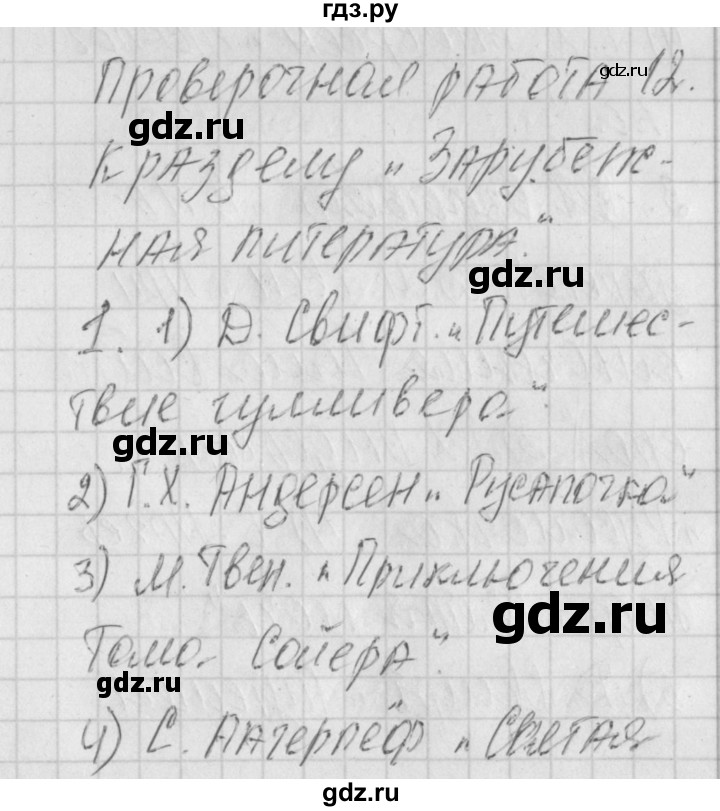 гдз.ру
Проверочная работа 12.
gdz.ru
gdz.ru
к разделу „Зарубеж-
ная литература."
gdz.ru
1. 1) Д. Свифт. „Путешес-
твие гулливера".
gdz.ru
2) Г.Х. Андерсен „Русалочка"
3) М. Твен. „Приключения
gdz.ru
Тома Сойера".
gdz.ru
4) С. Лагерлёф „Святая
gdz.ru